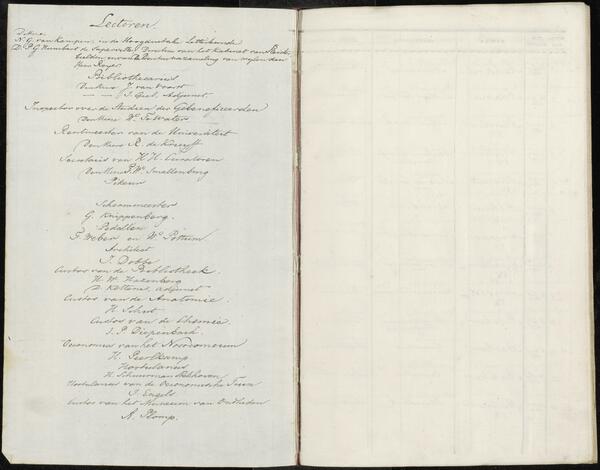 Lectoren.
N. G. van Kampen, in de Hoogduitsche Letterkunde
D. P. G. Humbert de Superville, Directeur van het Kabinet van
beelden en van de verzameling van wylen den
Heer Royer.
Bibliothecarius
De Heer J. van Voorst
— — J. Geel, Adjunct.
Inspector over de Studien der Gebeneficeerden
De Heer W. Te Water
Rentmeester van de Universiteit
De Heer R. de Kruyff
Secretaris van H. H. Curatoren
De Heer P. W. Smallenburg
Pikeur
Schermmeester
G. Knippenberg.
Pedellen
F. Weber en W. Pottum.
Architect
J. Dobbe
Custos van de Bibliotheek.
H. W. Hazenberg
D. Kettene, adjunct
Custos van de Anatomie.
H. Schut
Custos van de Chemie.
J. P. Diepenbach.
Oeconomus van het Nosocomeum
H. Peerlkamp
Hortulanus
H. Schuurman Stekhoven
Hortulanus van de Oeconomische Tuin
J. Engels
Custos van het Museum van Oudheden
A. Plomp.